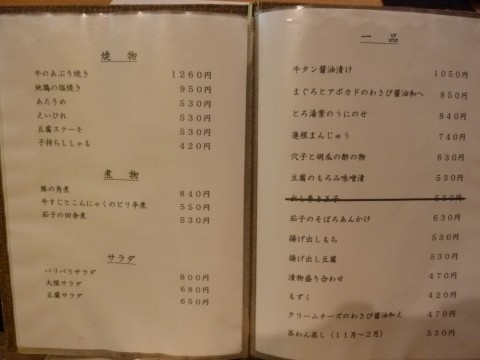 焼物
牛のあぶり焼き 1260円
地鶏の塩焼き 950円
あたりめ 530円
えいひれ 530円
豆腐ステーキ 530円
子持ちししゃも 420円
煮物
豚の角煮 840円
牛すじとこんにゃくのピリ辛煮 550円
茄子の田舎煮 530円
サラダ
パリパリサラダ 800円
大根サラダ 680円
豆腐サラダ 650円
一品
牛タン醤油漬け 1050円
まぐろとアボカドのわさび醤油和へ 850円
とろ湯葉のうにのせ 840円
蓮根まんじゅう 740円
穴子と胡瓜の酢の物 630円
豆腐のもろみ味噌漬 530円
出し巻き玉子 530円
茄子のそぼろあんかけ 630円
揚げ出しもち 530円
揚げ出し豆腐 530円
漬物盛り合わせ 470円
もずく 420円
クリームチーズのわさび醤油和え 470円
茶わん蒸し（11月〜2月） 530円